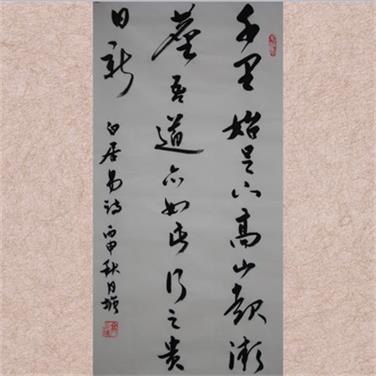 千里始足下高山起微
塵吾道亦如此行之贵
日新
白居易诗丙申秋月